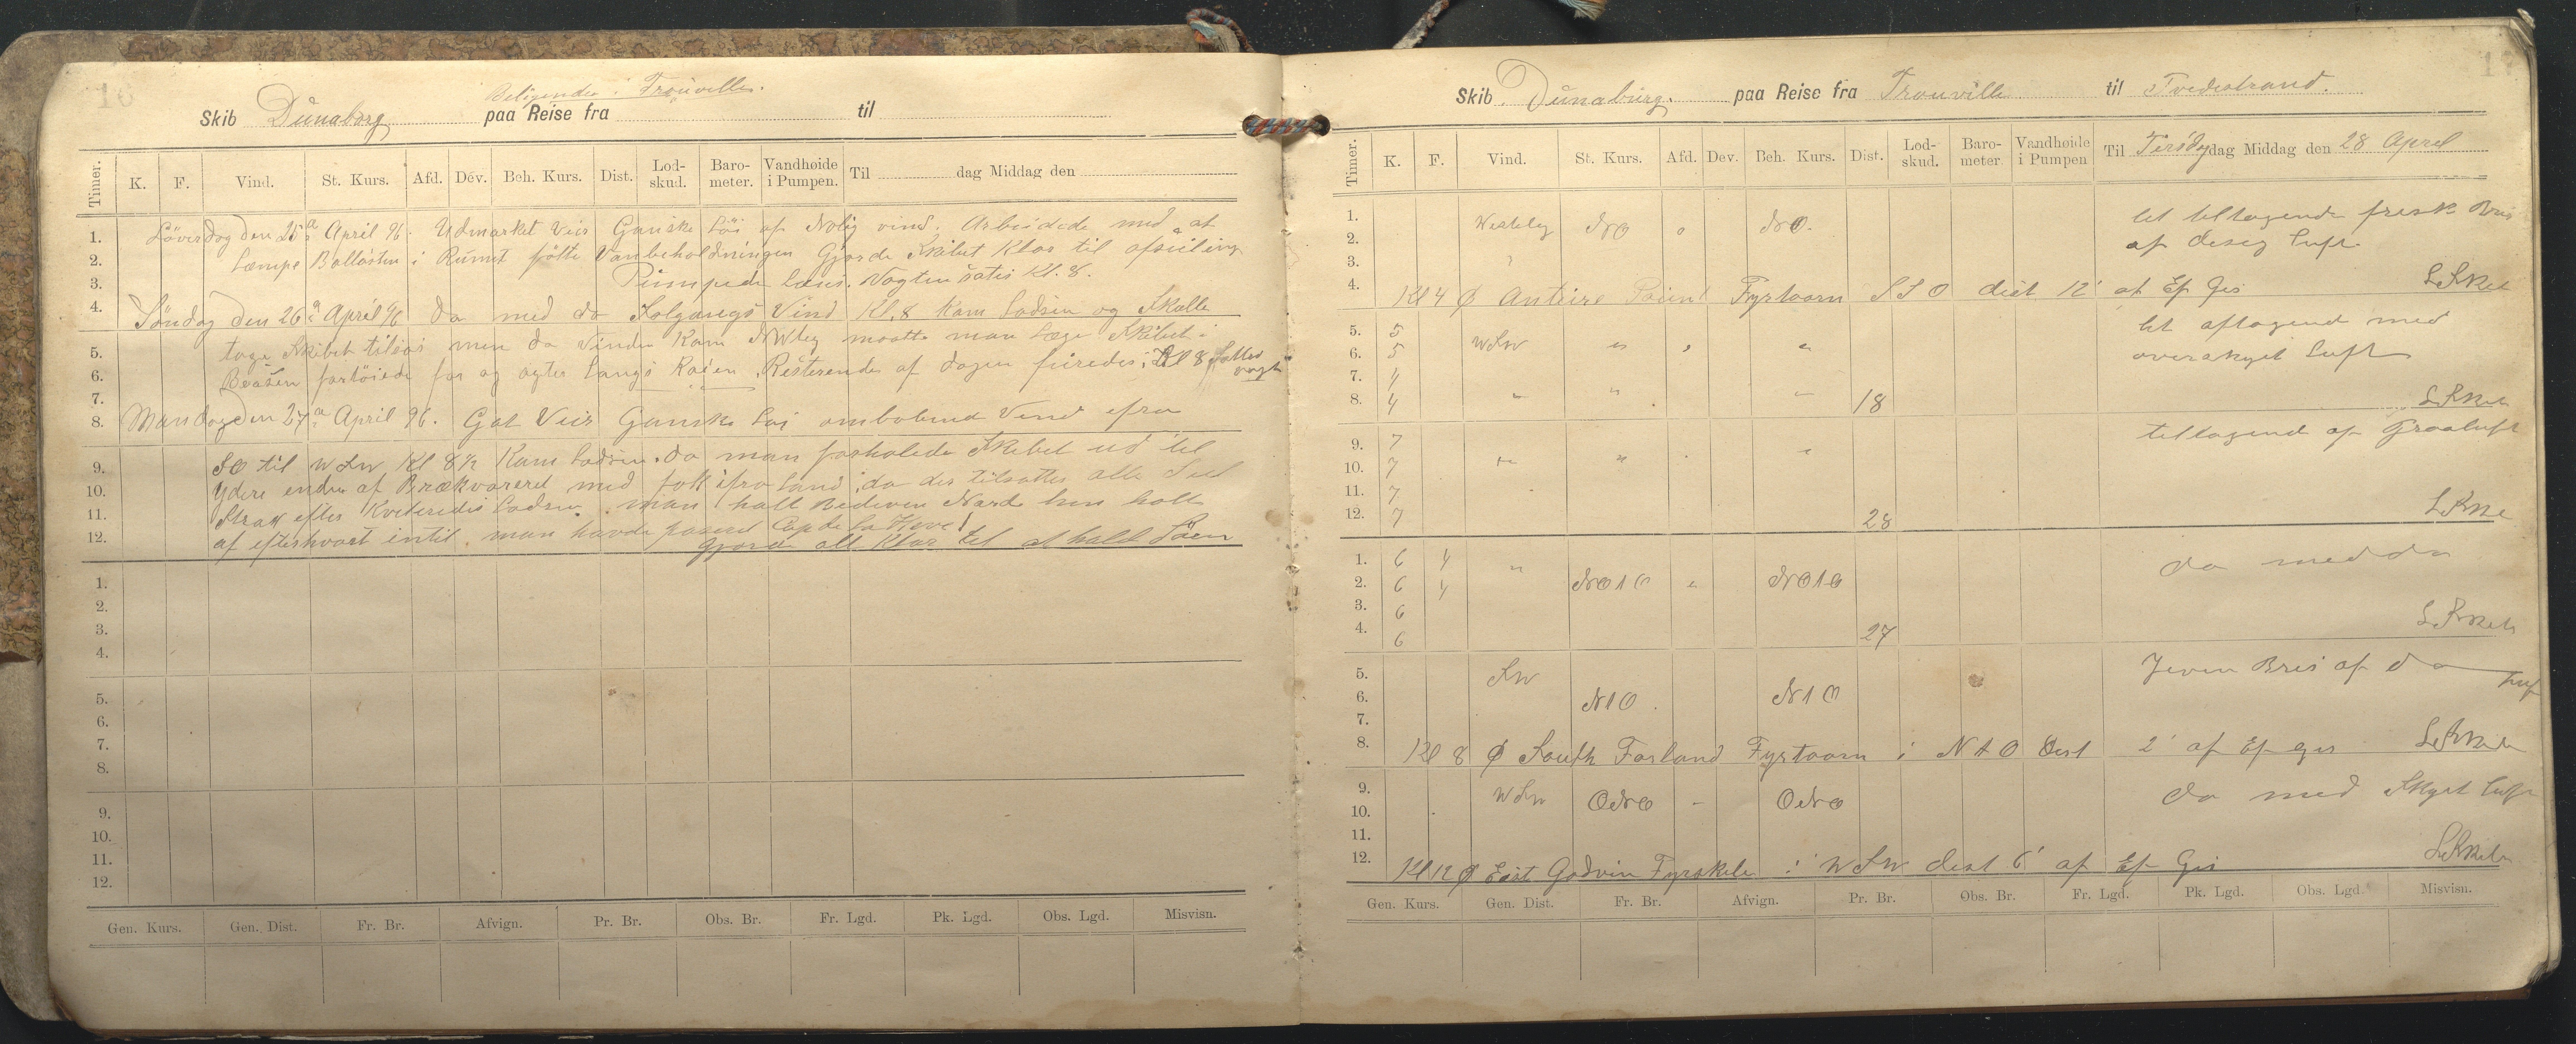 16
Beliggende i Trouville.
Skib Dünaborg paa Reise fra til
Timer. K. F. Vind. St. Kurs. Afd. Dev. Beh. Kurs. Dist. Lodskud. Barometer. Vandhøide i Pumpen. Til dag Middag den
1. Löverdag den 25de April 96. Udmærket Veir Ganske Löi af Nolig vind. Arbeidede med at
2. Læmpe Ballasten i Rumet følte Vanbeholdningen Gjorde Skibet Klar til afseiling
3. Pumpede læns. Vagten sattes Kl. 8.
4. Söndag den 26de April 96 da med da Solgangs Vind Kl. 8 Kam Lodsen og Skulle
5. tage Skibet tilsøs men da Vinden Kam NWleg maatte man læge Skibet i
6. Beasen fortöiede for og agter langs Kaien. Resterende af dagen fireredes; Kl 8 Sattes vagt
7.
8. Mandag den 27de April 96. Gat Veir Ganske Löi omlobend Vind ifra
9. SO til WSW Kl 8½ Kam Lodsen. da man forhalede Skibet ud til
10. Ydere enden af Brækvareret med folk ifra Land; da des tilsattes alle Seil
11. Strax efter Kviteredes Lodsen. man halt Bedeven Narde hen holt
12. af efterhvart intil man havde paseret Cap de la Heve
Gjorde alt Klar til at hald Söen
1.
2.
3.
4.
5.
6.
7.
8.
9.
10.
11.
12.
Gen. Kurs. Gen. Dist. Fr. Br. Afvign. Pr. Br. Obs. Br. Fr. Lgd. Pk. Lgd. Obs. Lgd. Misvisn.
17
Skib Dünaburg. paa Reise fra Trouville til Tvedestrand.
Timer. K. F. Vind. St. Kurs. Afd. Dev. Beh. Kurs. Dist. Lodskud. Barometer. Vandhøide i Pumpen Til Tirsdag dag Middag den 28 April
1. Westeleg NO o NO. let tiltagende frisk Bris
2. af diseg Luft
3.
4. Kl 4 Ø Antire Point Fyrtaarn SSO dist 12' af Ef Gis
5. 5 WSW " " " let aftagend med
6. 5 overskyet Luft
7. 4
8. 4 " " " 18
9. 7 " " " tiltagend af Graaluft
10. 7
11. 7
12. 7 28
1. 6 4 " da med da
2. 6 4 NO1O " NO1O
3. 6
4. 6 27
5. SW Jevn Bris af da Luft
6. N1O N1O
7.
8. Kl 8 Ø South Forland Fyrtaarn i N1O Dist 2' af Ef gis
9. WSW ONO - ONO da med Skyet Luft
10.
11.
12. Kl 12 Ø East Godvin Fyrskib i WSW dist 6' af Ef Gis
Gen. Kurs. Gen. Dist. Fr. Br. Afvign. Pr. Br. Obs. Br. Fr. Lgd. Pk. Lgd. Obs. Lgd. Misvisn.